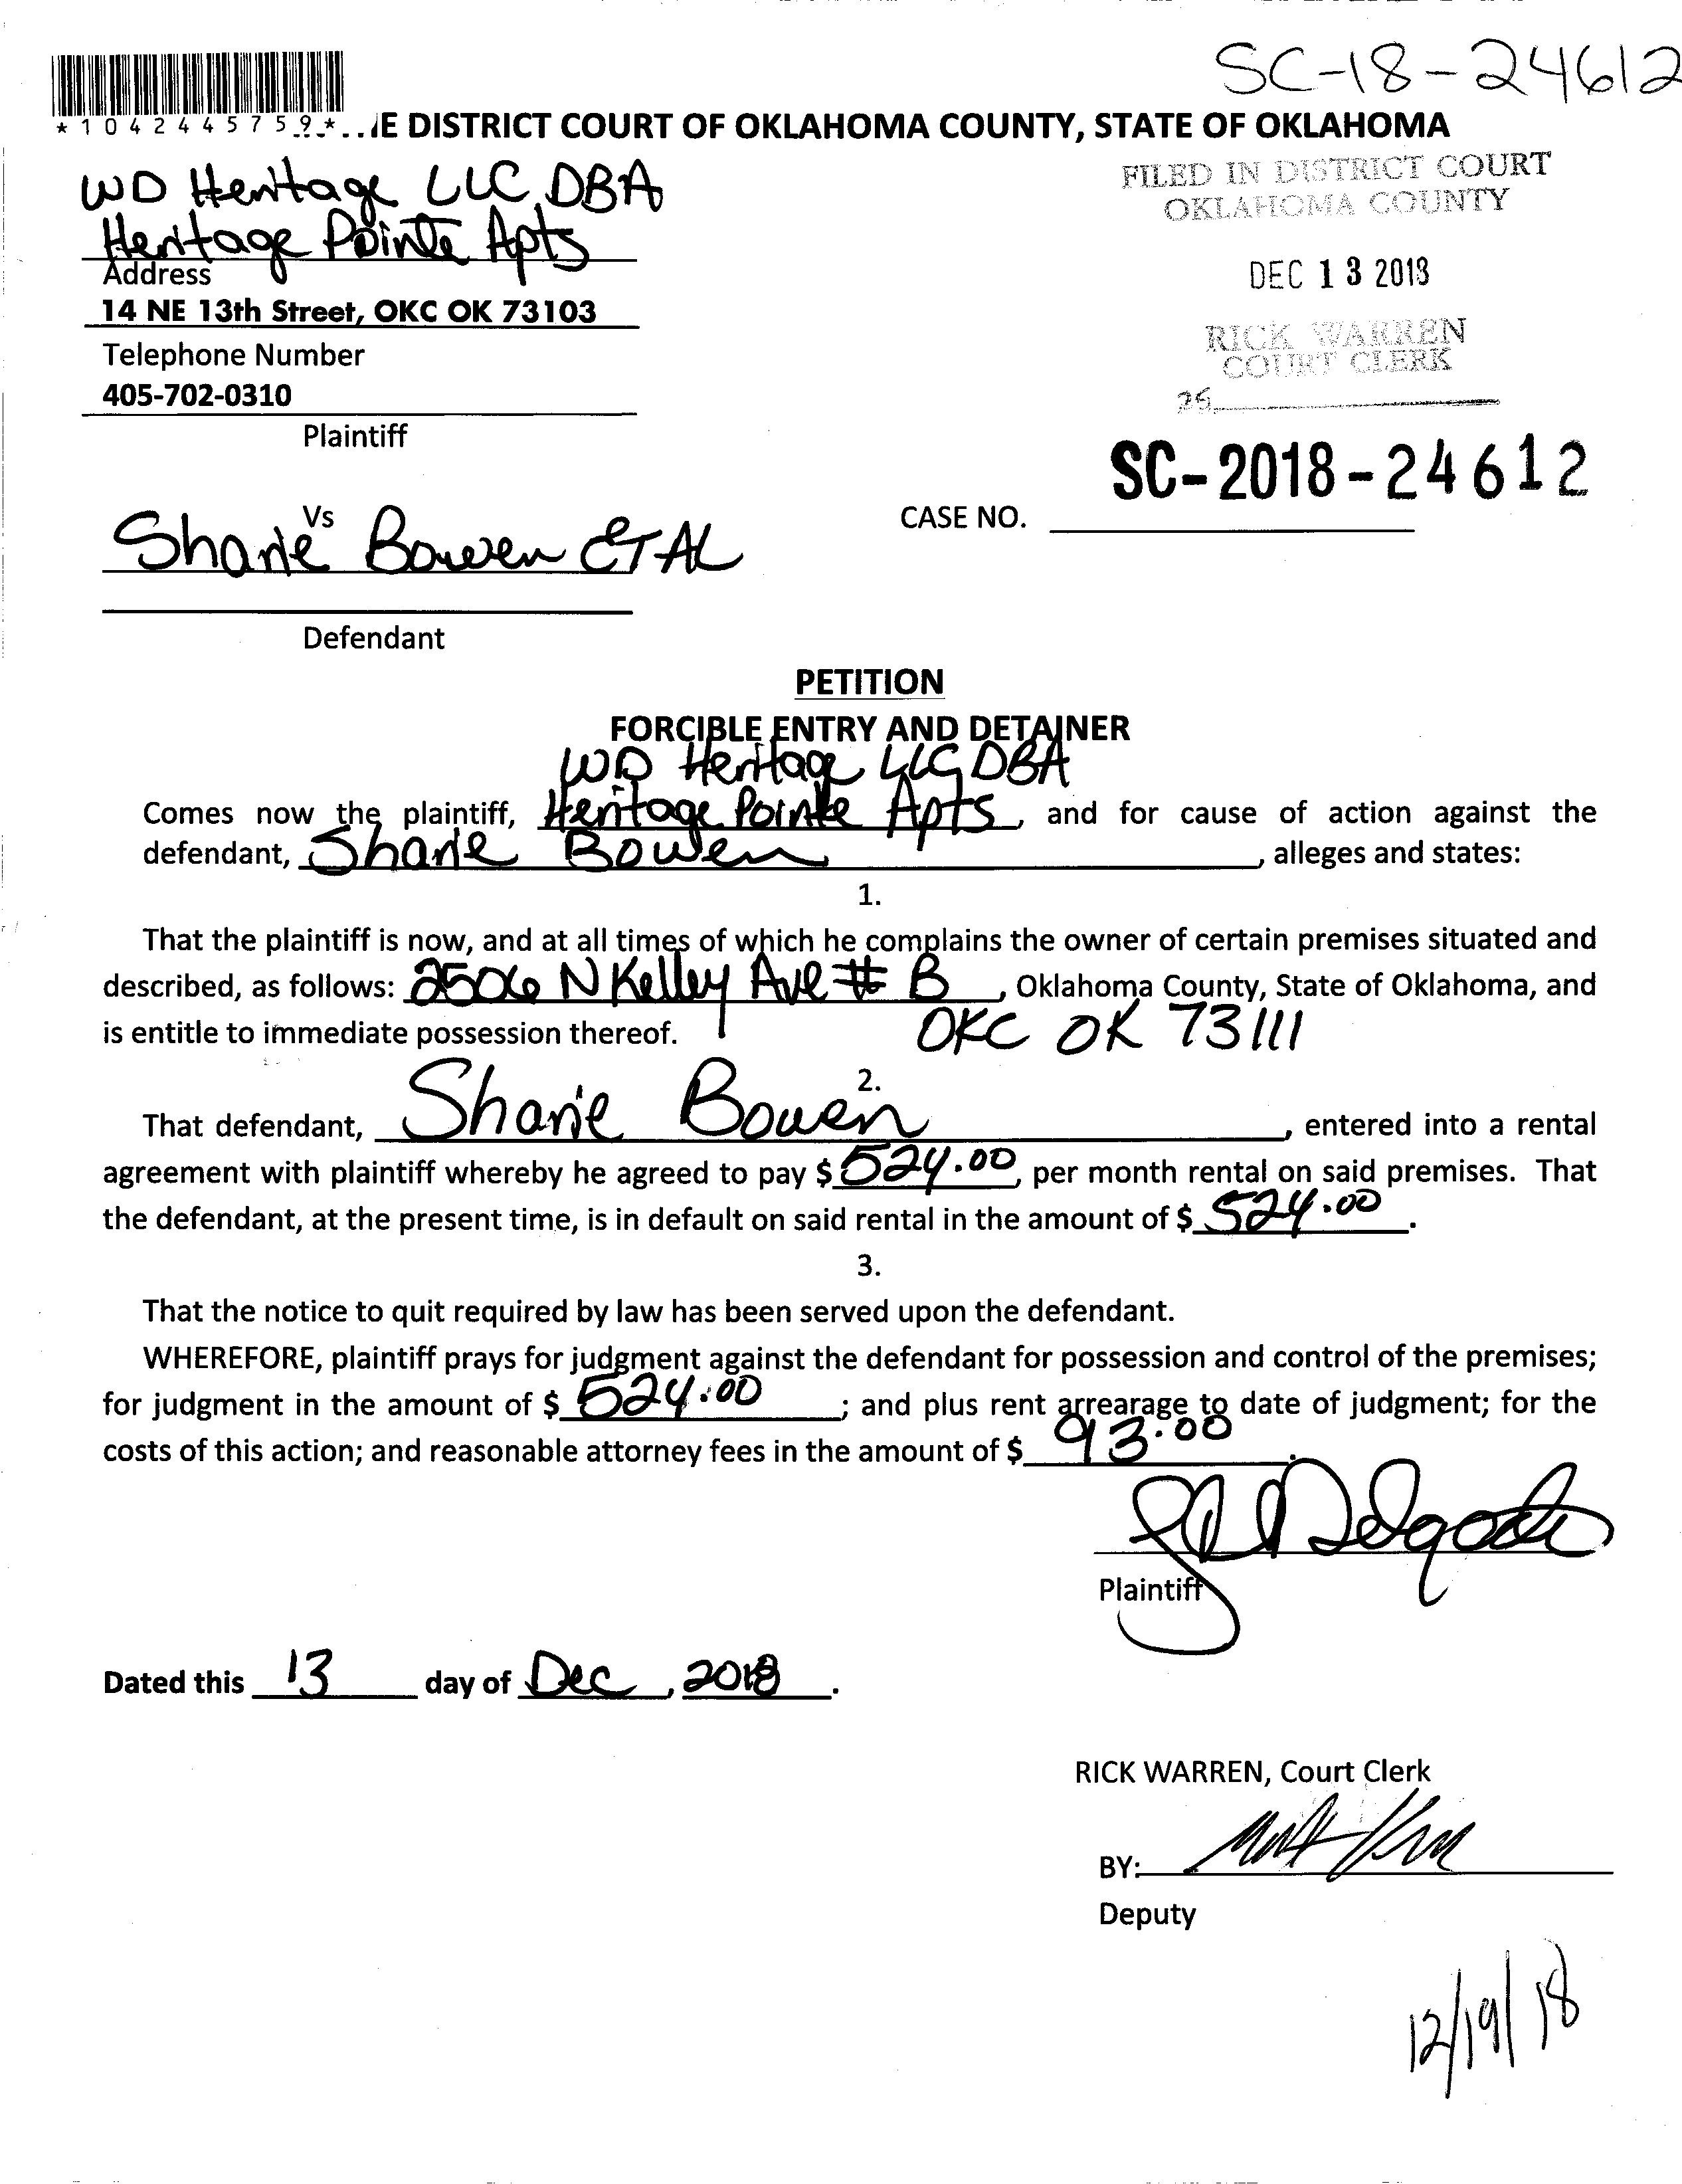 SC-18-24612
*1042445759*
IE DISTRICT COURT OF OKLAHOMA COUNTY, STATE OF OKLAHOMA
WD Heritage LLC DBA
Heritage Pointe Apts
Address
14 NE 13th Street, OKC OK 73103
Telephone Number
405-702-0310
Plaintiff
FILED IN DISTRICT COURT
OKLAHOMA COUNTY
DEC 13 2018
RICK WARREN
COURT CLERK
SC-2018-24612
CASE NO.
Vs
Sharie Bowen ET AL
Defendant
PETITION
FORCIBLE ENTRY AND DETAINER
WD Heritage LLC DBA
Comes now the plaintiff, Heritage Pointe Apts, and for cause of action against the
defendant, Sharie Bowen, alleges and states:
1.
That the plaintiff is now, and at all times of which he complains the owner of certain premises situated and
described, as follows: 2506 N Kelley Ave # B, Oklahoma County, State of Oklahoma, and
is entitle to immediate possession thereof. OKC OK 73111
2.
That defendant, Sharie Bowen, entered into a rental
agreement with plaintiff whereby he agreed to pay $ 524.00, per month rental on said premises. That
the defendant, at the present time, is in default on said rental in the amount of $ 524.00.
3.
That the notice to quit required by law has been served upon the defendant.
WHEREFORE, plaintiff prays for judgment against the defendant for possession and control of the premises;
for judgment in the amount of $ 524.00; and plus rent arrearage to date of judgment; for the
costs of this action; and reasonable attorney fees in the amount of $ 93.00.
Delgado
Plaintiff
Dated this 13 day of Dec, 2018.
RICK WARREN, Court Clerk
BY:
Deputy
12/19/18